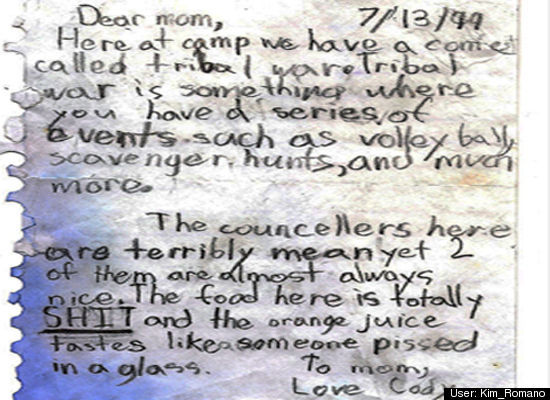 Dear mom, 7/13/99
Here at camp we have a contest
called tribal war. Tribal
war is something where
you have a series of
events such as volley ball,
scavenger hunts, and much
more.
The councellers here
are terribly mean yet 2
of them are almost always
nice. The food here is totally
SHIT and the orange juice
tastes like someone pissed
in a glass.
To mom,
Love Cody
User: Kim_Romano